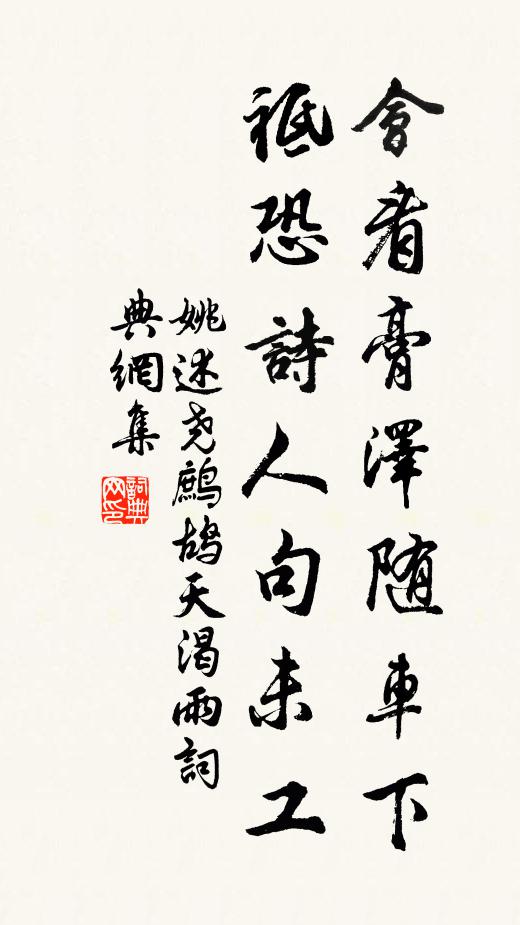 會看膏澤隨車下
祗恐詩人句未工
姚述尧鷓鴣天渴雨詞
典網集
詞典网印